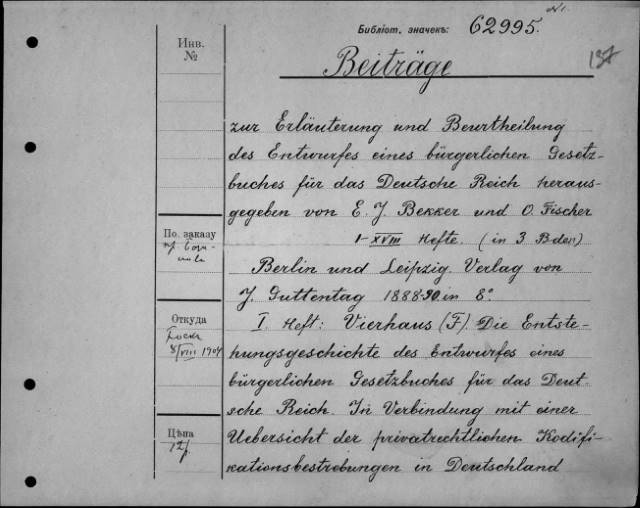 Библіот. значекъ: 62995.
137
Инв.
№
Beiträge
zur Erläuterung und Beurtheilung
des Entwurfes eines bürgerlichen Gesetz-
buches für das Deutsche Reich heraus-
gegeben von E. J. Bekker und O. Fischer
1-XVIII Hefte. (in 3 B-den)
По заказу
Berlin und Leipzig. Verlag von
J. Guttentag 1888-90 in 8°.
Откуда
8/VIII 1904
I. Heft: Vierhaus (F). Die Entste-
hungsgeschichte des Entwurfes eines
bürgerlichen Gesetzbuches für das Deut-
sche Reich. In Verbindung mit einer
Цѣна
Uebersicht der privatrechtlichen Kodifi-
kationsbestrebungen in Deutschland